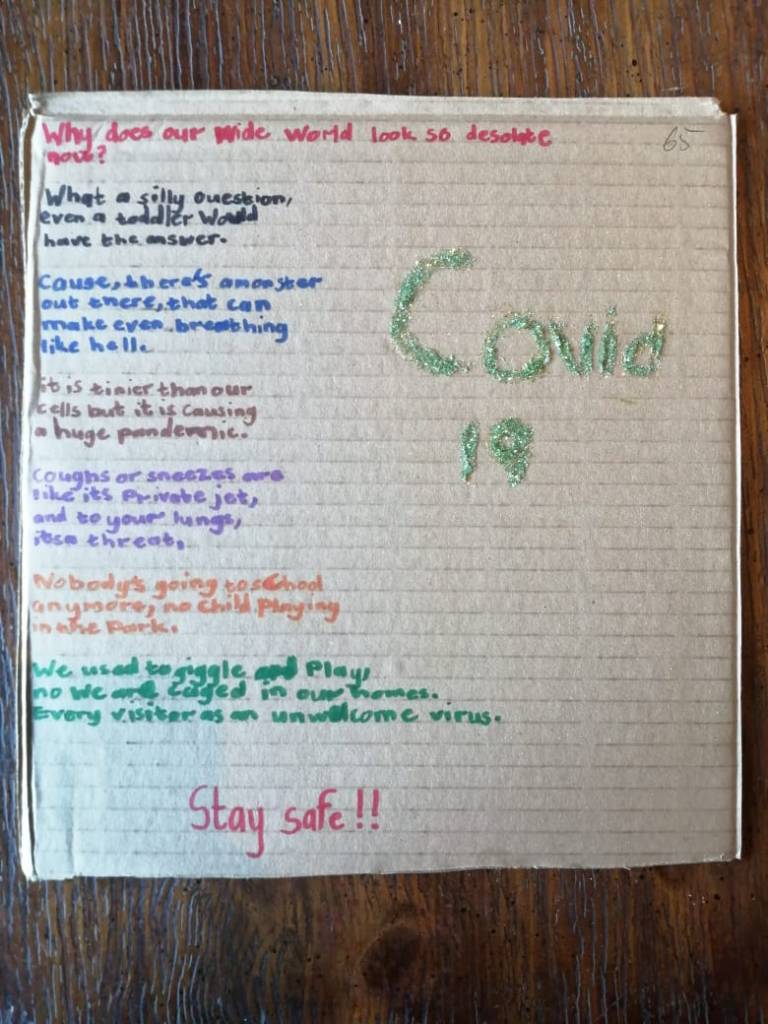 Why does our wide world look so desolate
now?
65
What a silly question,
even a toddler would
have the answer.
Cause, there's a monster
out there, that can
make even breathing
like hell.
it is tinier than our
cells but it is causing
a huge pandemic.
Coughs or sneezes are
like its private jet,
and to your lungs,
its a threat,
Nobody's going to school
anymore, no child playing
in the Park.
We used to giggle and Play,
no we are caged in our homes.
Every visiter as an unwelcome virus.
Covid
19
Stay safe!!